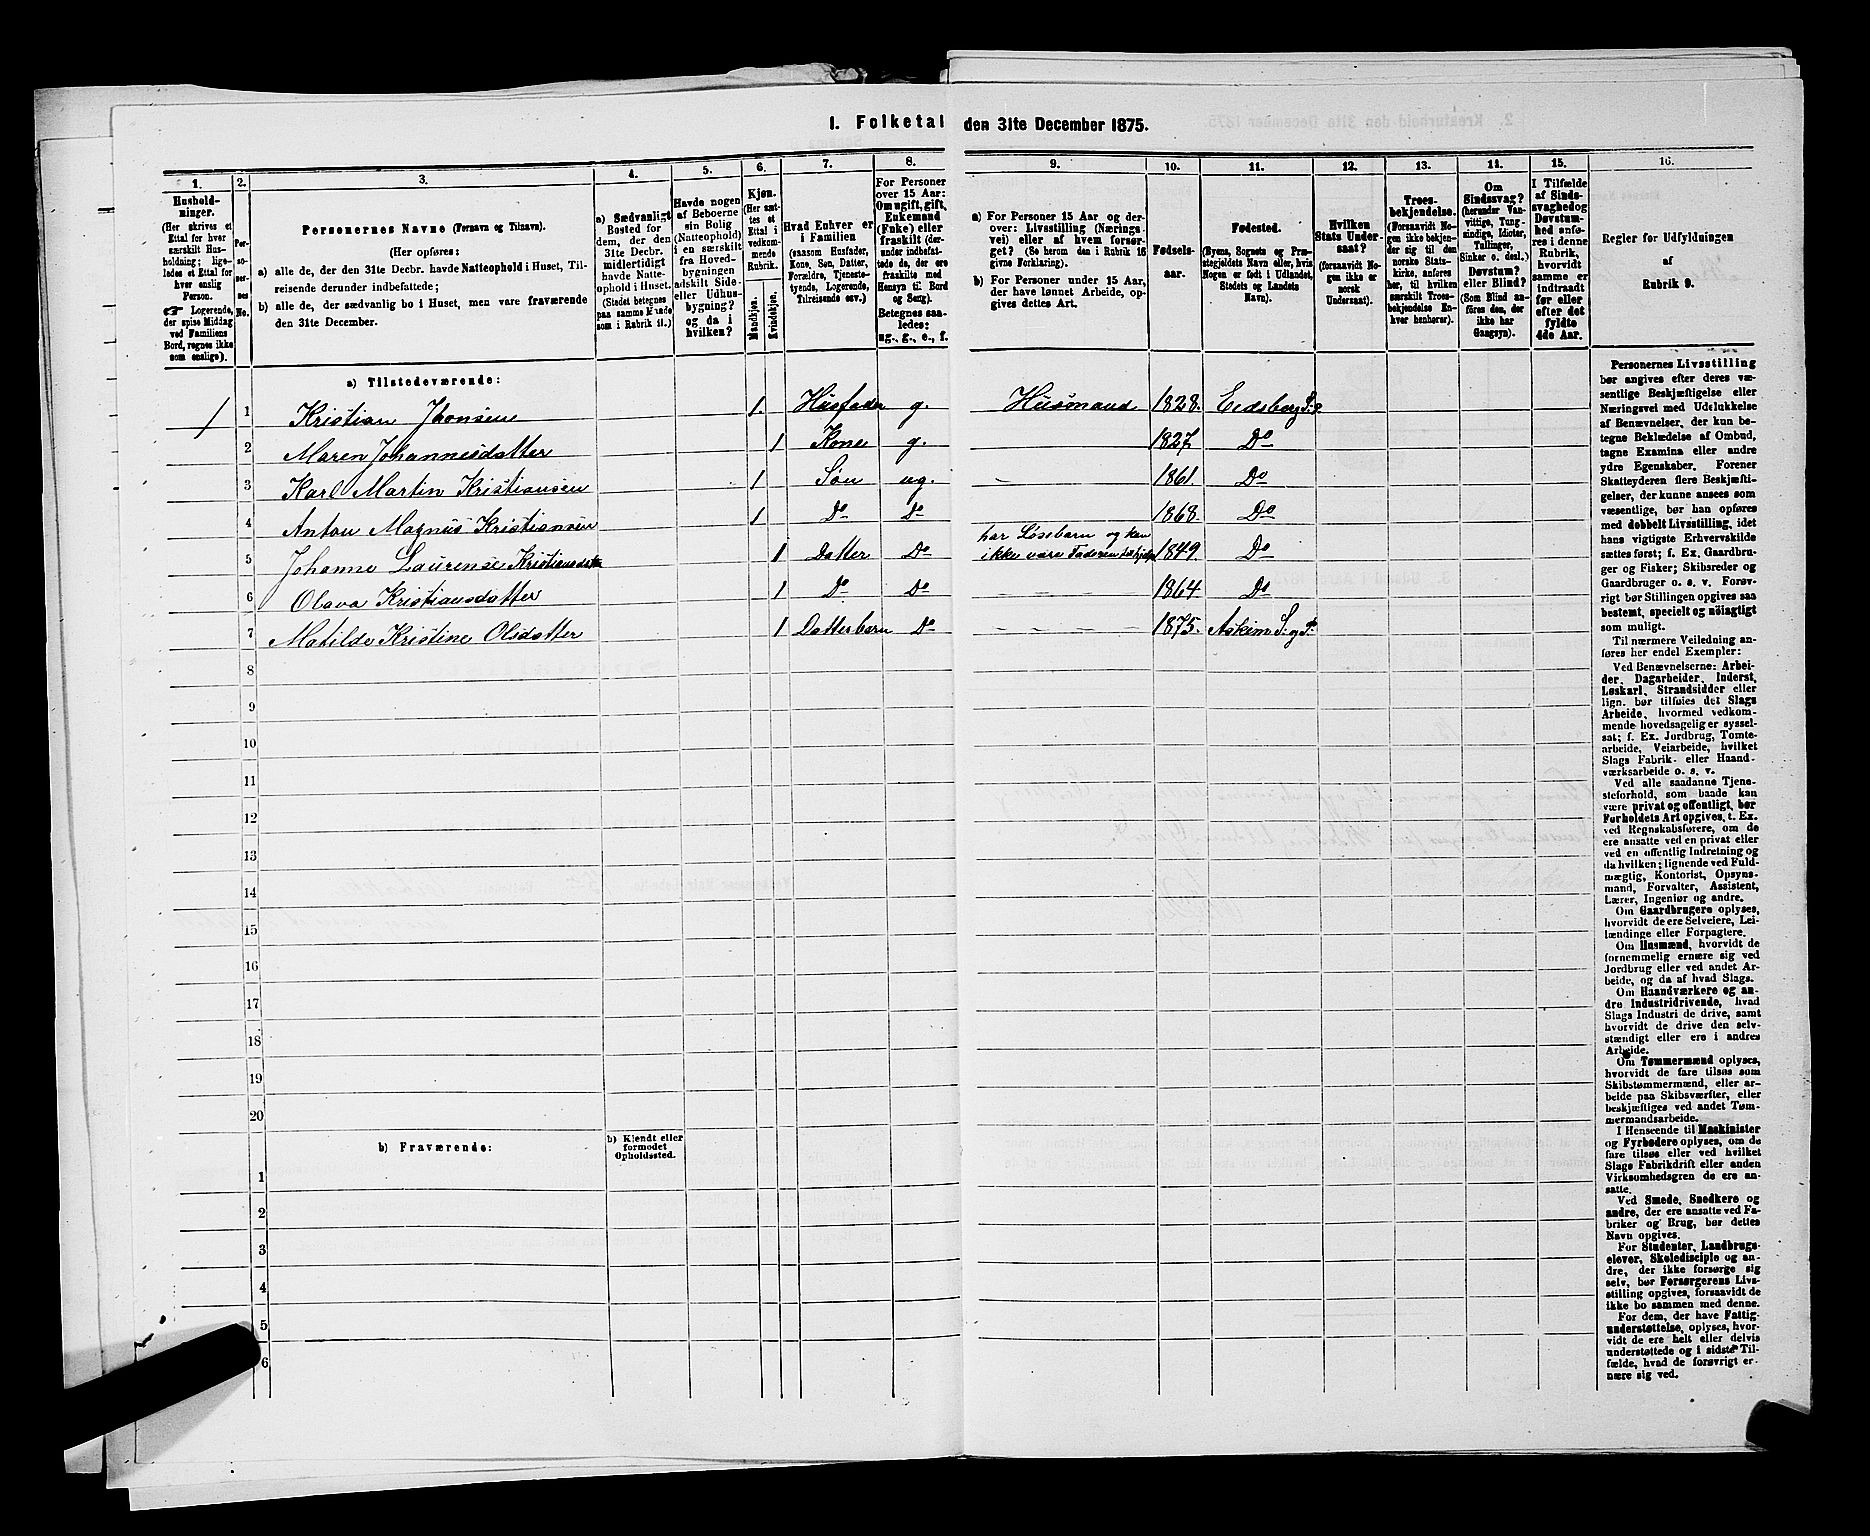 1. Folketal den 31te December 1875.
1.
2.
3.
4.
5.
6.
7.
8.
9.
10.
11.
12.
13.
14.
15.
16.
Hushold-
ninger.
(Her skrives et
Ettal for hver
særskilt Hus-
holdning; lige-
ledes et Ettal for
hver enslig
Person.
☛ Logerende,
der spise Middag
ved Familiens
Bord, regnes ikke
som enslige).
Per-
so-
per-
nes
No.
Personernes Navne (Fornavn og Tilnavn).
(Her opføres:
a) alle de, der den 31te Decbr. havde Natteophold i Huset, Til-
reisende derunder indbefattede;
b) alle de, der sædvanlig bo i Huset, men vare fraværende
den 31te December.
a) Sædvanligt
Bosted for
dem, der den
31te Decbr.
midlertidigt
havde Natte-
ophold i Huset.
(Stedet betegnes
paa samme Maade
som i Rubrik 11.)
Havde nogen
af Beboerne
sin Bolig
(Natteophold)
i en særskilt
fra Hoved-
bygningen
adskilt Side-
eller Udhus-
bygning?
og da i
hvilken?
Kjøn.
(Her sæt-
tes et
Ettal i
vedkom-
mende
Rubrik.
Mandkjøn.
Kvindekjøn.
Hvad Enhver er
i Familien
(saasom Husfader,
Kone, Søn, Datter,
Forældre, Tjeneste-
tyende, Logerende,
Tilreisende osv.)
For Personer
over 15 Aar:
Om ugift, gift,
Enkemand
(Enke) eller
fraskilt (der-
under indbefat-
tede de, der ere
fraskilte med
Hensyn til Bord
og Seng).
Betegnes saa-
ledes:
ug., g., e., f.
a) For Personer 15 Aar og der-
over: Livsstilling (Nærings-
vei) eller af hvem forsør-
get? (Se herom den i Rubrik 16
givne Forklaring).
b) For Personer under 15 Aar,
der have lønnet Arbeide, op-
gives dettes Art.
Fødsels-
aar.
Fødested.
(Byens, Sognets og Præ-
stegjeldets Navn eller, hvis
Nogen er født i Udlandet,
Stedets og Landets
Navn).
Hvilken
Stats Under-
saat?
(forsaavidt No-
gen ikke er
norsk
Undersaat).
Troes-
bekjendelse.
(Forsaavidt No-
gen ikke bekjen-
der sig til den
norske Stats-
kirke, anføres
her, til hvilken
særskilt Troes-
bekjendelse En-
hver henhører).
Om
Sindssvag?
(herunder Van-
vittige, Tung-
sindige, Idioter,
Tullinger,
Sinker o. desl.)
Døvstum?
eller Blind?
(Som Blind an-
føres den, der
ikke har
Gangsyn).
I Tilfælde
af Sinds-
svaghed og
Døvstum-
hed anfø-
res i denne
Rubrik,
hvorvidt
samme er
indtraadt
før eller
efter det
fyldte
4de Aar.
Regler for Udfyldningen
af
Rubrik 9.
a) Tilstedeværende:
1 1 Kristian Jhonsen 1. Husfader g. Husmand 1828. Eidsberg P.g.
2 Maren Johannesdatter 1 Kone g. 1827 Do
3 Karl Martin Kristiansen 1 Søn ug. 1861. Do
4 Anton Magnus Kristiansen 1 Do Do 1868. Do
har Løsebarn og kan
5 Johanne Laurense Kristiansdat 1 Datter Do ikke være Faderen 1849. Do
6 Olava Kristiansdatter 1 Do Do 1864 Do
7 Matilde Kristine Olsdatter 1 Datterbarn Do 1875. Askim S. og P.
8
9
10
11
12
13
14
15
16
17
18
19
20
b) Fraværende:
b) Kjendt eller
formodet
Opholdssted.
1
2
3
4
5
6
Personernes Livsstilling
bør angives efter deres væ-
sentlige Beskjæftigelse eller
Næringsvei med Udelukkelse
af Benævnelser, der kun be-
tegne Beklædelse af Ombud,
tagne Examina eller andre
ydre Egenskaber. Forener
Skatteyderen flere Beskjæfti-
gelser, der kunne ansees som
væsentlige, bør han opføres
med dobbelt Livsstilling, idet
hans vigtigste Erhvervskilde
sættes først; f. Ex. Gaardbru-
ger og Fisker; Skibsreder og
Gaardbruger o. s. v. Forøv-
rigt bør Stillingen opgives saa
bestemt, specielt og nøiagtigt
som muligt.
Til nærmere Veiledning an-
føres her endel Exempler:
Ved Benævnelserne: Arbei-
der, Dagarbeider, Inderst,
Løskarl, Strandsidder eller
lign. bør tilføies det Slags
Arbeide, hvormed vedkom-
mende hovedsagelig er syssel-
sat; f. Ex. Jordbrug, Tomte-
arbeide, Veiarbeide, hvilket
Slags Fabrik- eller Haand-
værksarbeide o. s. v.
Ved alle saadanne Tjene-
steforhold, som baade kan
være privat og offentligt, bør
Forholdets Art opgives, t. Ex.
ved Regnskabsførere, om de
ere ansatte ved en privat eller
ved en offentlig Indretning og
da hvilken; lignende ved Fuld-
mægtig, Kontorist, Opsyns-
mand, Forvalter, Assistent,
Lærer, Ingeniør og andre.
Om Gaardbrugere oplyses,
hvorvidt de ere Selveiere, Lei-
lændinge eller Forpagtere.
Om Husmænd, hvorvidt de
fornemmelig ernære sig ved
Jordbrug eller ved andet Ar-
beide, og da af hvad Slags.
Om Haandværkere og an-
dre Industridrivende, hvad
Slags Industri de drive, samt
hvorvidt de drive den selv-
stændigt eller ere i andres
Arbeide.
Om Tømmermænd oplyses,
hvorvidt de fare tilsøs som
Skibstømmermænd, eller ar-
beide paa Skibsværfter, eller
beskjæftiges ved andet Tøm-
mermandsarbeide.
I Henseende til Maskinister
og Fyrbødere oplyses, om de
fare tilsøs eller ved hvilket
Slags Fabrikdrift eller anden
Virksomhedsgren de ere an-
satte.
Ved Smede, Snedkere og
andre, der ere ansatte ved Fa-
briker og Brug, bør dettes
Navn opgives.
For Studenter, Landbrugs-
elever, Skoledisciple og an-
dre, der ikke forsørge sig
selv, bør Forsørgerens Livs-
stilling opgives, forsaavidt de
ikke bo sammen med denne.
For dem, der have Fattig-
understøttelse, oplyses, hvor-
vidt de ere helt eller delvis
understøttede og i sidste Til-
fælde, hvad de forøvrigt er-
nære sig ved.